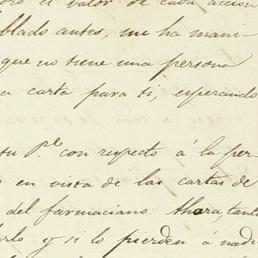 el valor de cada acción
blado antes, me ha mani
que no tiene una persona
a carta para ti, esperando
tu P.e con respecto á la per
s en vista de las cartas de
del farmaciano. Ahora, tanto
y si lo pierden á nadi